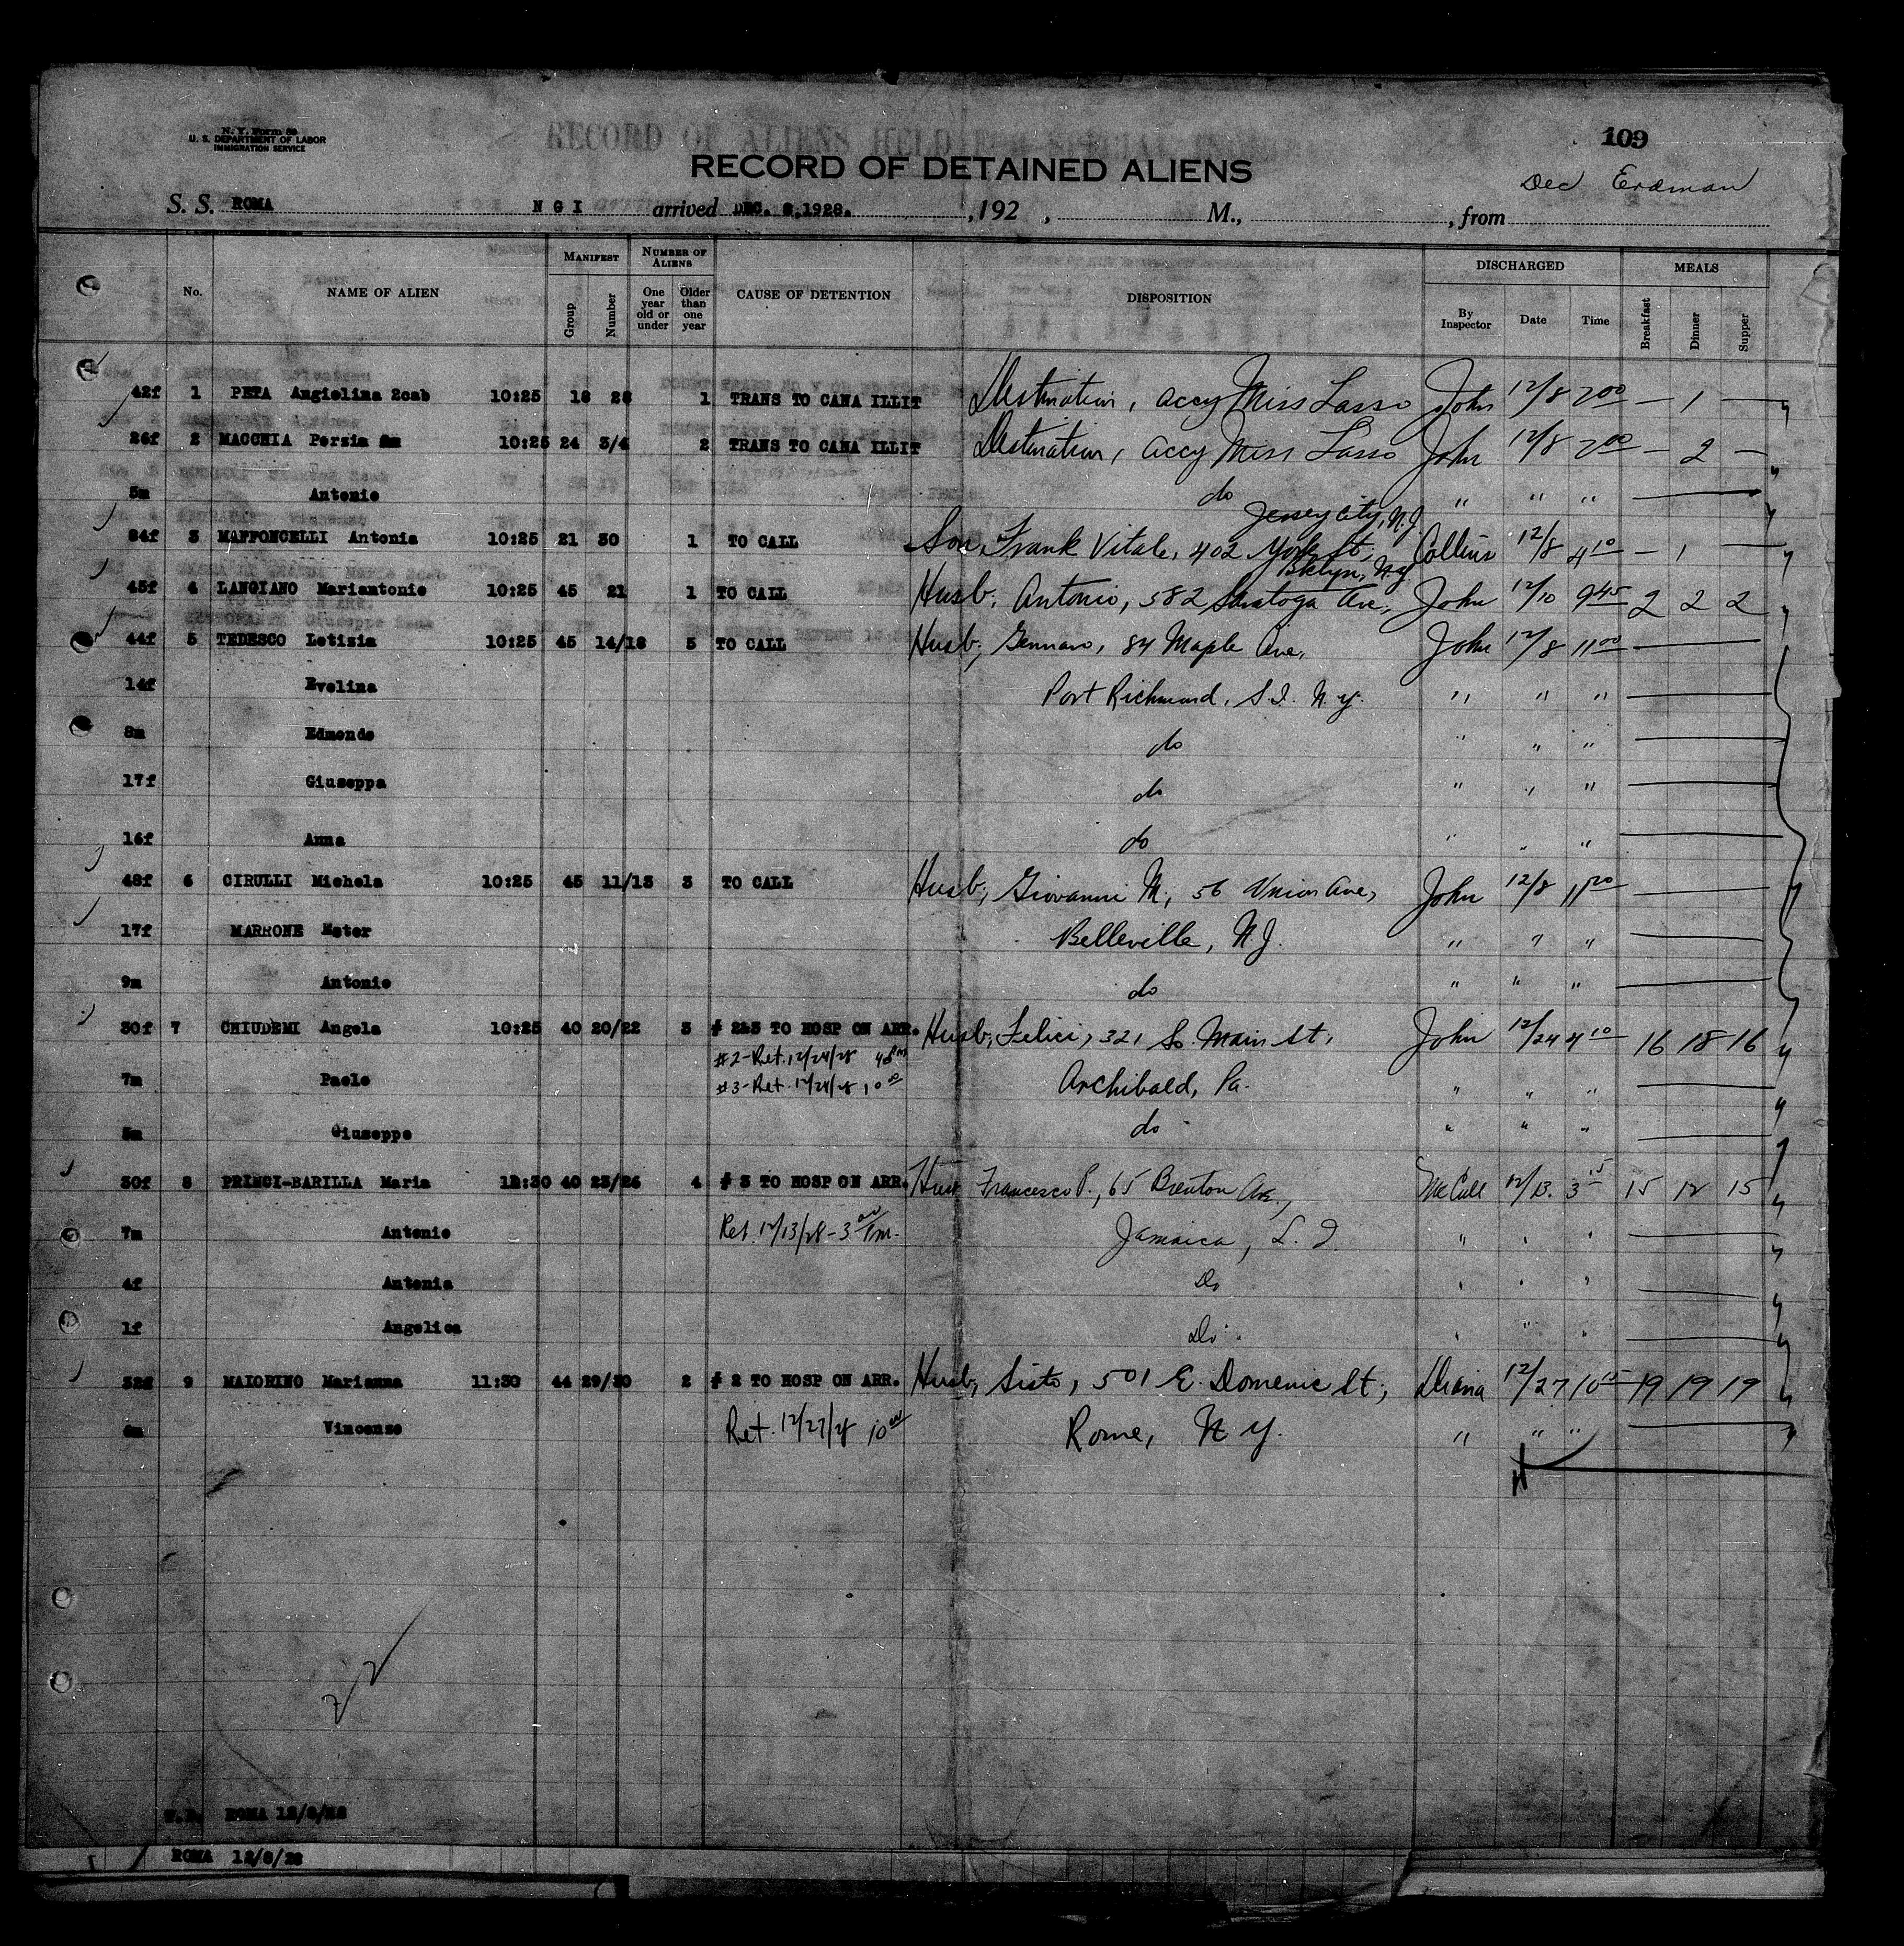 N. Y. Form 89
U. S. DEPARTMENT OF LABOR
IMMIGRATION SERVICE
109
RECORD OF ALIENS HELD SPECIAL
RECORD OF DETAINED ALIENS
Dec Erdman
S. S. ROMA N G I arrived DEC. 8,1928. ,192 , M., , from
No. NAME OF ALIEN MANIFEST Group Number NUMBER OF ALIENS One year old or under Older than one year CAUSE OF DETENTION DISPOSITION DISCHARGED By Inspector Date Time MEALS Breakfast Dinner Supper
42f 1 PETA Angiolina 2cab 10:25 18 28 1 TRANS TO CANA ILLIT Destination, accy Miss Lasso John 12/8 2 00 — 1 —
26f 2 MACCHIA Persia 10:25 24 3/4 2 TRANS TO CANA ILLIT Destination, accy Miss Lasso John 12/8 2 00 — 2 —
5m Antonio do " " "
Jersey City, N.J.
54f 3 MAFFONCELLI Antonia 10:25 21 30 1 TO CALL Son, Frank Vitale, 402 York St, Collins 12/8 4 10 — 1 —
Bklyn, N.Y.
45f 4 LANGIANO Mariantonie 10:25 45 21 1 TO CALL Husb, Antonio, 582 Saratoga Ave, John 12/10 9 45 2 2 2
44f 5 TEDESCO Letizia 10:25 45 14/18 5 TO CALL Husb, Gennaro, 84 Maple Ave, John 12/8 11 00
14f Evelina Port Richmond, S.I. N.Y. " " "
8m Edmondo do " " "
17f Giuseppa do " " "
16f Anna do " " "
48f 6 CIRULLI Michela 10:25 45 11/13 3 TO CALL Husb, Giovanni M, 56 Union Ave, John 12/8 11 20
17f MARRONE Ester Belleville, N.J. " " "
9m Antonio do " " "
30f 7 CHIUDEMI Angela 10:25 40 20/22 3 # 2&3 TO HOSP ON ARR. Husb, Felici, 321 So. Main St, John 12/24 4 10 16 18 16
#2-Ret. 12/24/28
7m Paolo #3-Ret. 12/24/28 10 00 Archibald, Pa. " " "
5m Giuseppe do " " "
30f 8 PRINCI-BARILLA Maria 12:30 40 23/26 4 # 3 TO HOSP ON ARR. Hus Francesco P., 65 Brenton Ave, McCall 12/13. 3 15 15 12 15
7m Antonio Ret. 12/13/28 - 3 00 Pm. Jamaica, L. I. " " "
4f Antonia Do " " "
1f Angelica Do " " "
32f 9 MAIORINO Marianna 11:30 44 29/30 2 # 2 TO HOSP ON ARR. Husb, Sisto, 501 E. Domenic St, Diana 12/27 10 15 19 19 19
6m Vincenzo Ret. 12/27/28 10 00 Rome, N Y. " " "
22
ROMA 12/8/28
ROMA 12/8/28